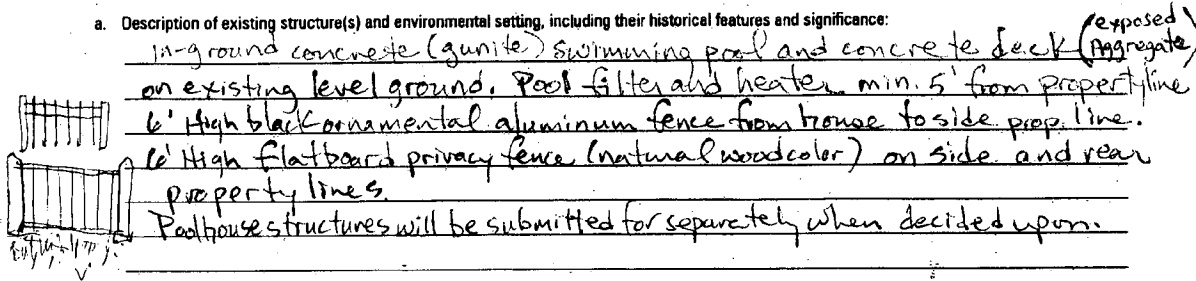 a. Description of existing structure(s) and environmental setting, including their historical features and significance:
In-ground concrete (gunite) swimming pool and concrete deck (exposed Aggregate)
on existing level ground. Pool filter and heater min. 5' from property line
6' High black ornamental aluminum fence from house to side prop. line.
6' High flatboard privacy fence (natural wood color) on side and rear
property lines.
Poolhouse structures will be submitted for separately when decided upon.